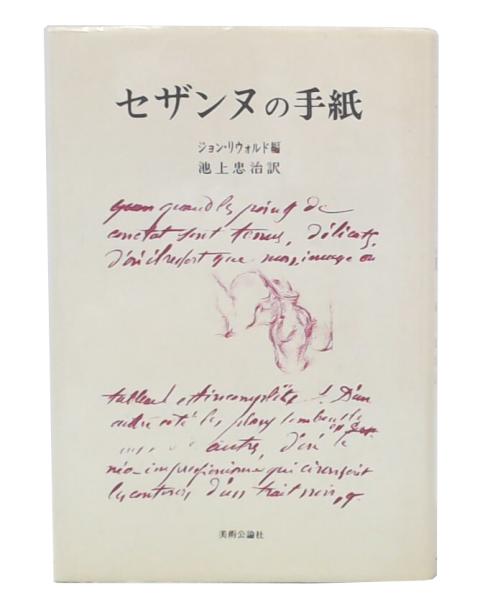 セザンヌの手紙
ジョン・リウォルド編
池上忠治訳
quand les points de
contact sont tenus, délicats,
d'où il ressort que mon image ou
tableau est incomplète! D'un
autre côté les plans tombent
autre, d'où le
néo-impressionisme qui circonscrit
les contours d'un trait noir,
美術公論社